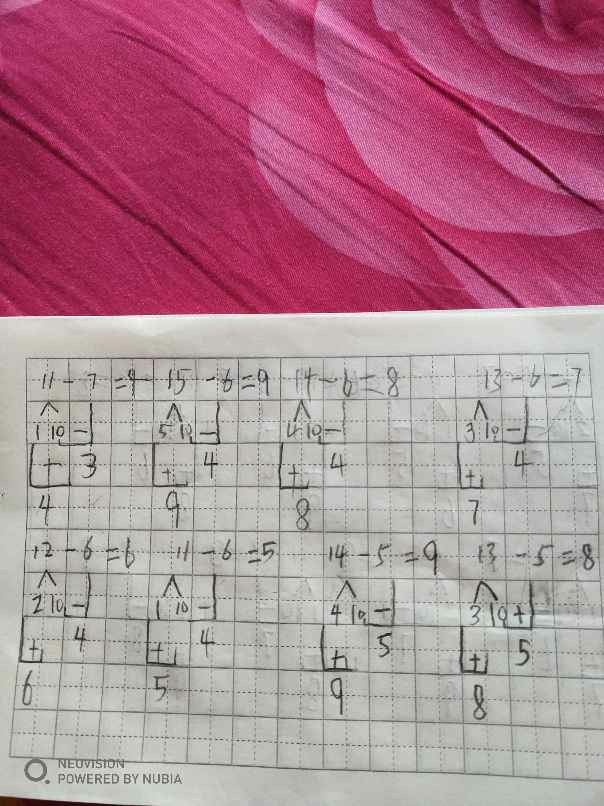 11 - 7 = 4 15 - 6 = 9 14 - 6 = 8 13 - 6 = 7
1 10 - 5 10 - 4 10 - 3 10 -
+ 3 + 4 + 4 + 4
4 9 8 7
12 - 6 = 6 11 - 6 = 5 14 - 5 = 9 13 - 5 = 8
2 10 - 1 10 - 4 10 - 3 10 +
+ 4 + 4 + 5 + 5
6 5 9 8
NEUVISION
POWERED BY NUBIA